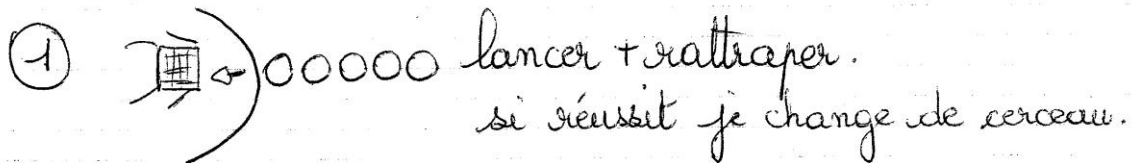 1 lancer + rattraper.
si réussit je change de cerceau.